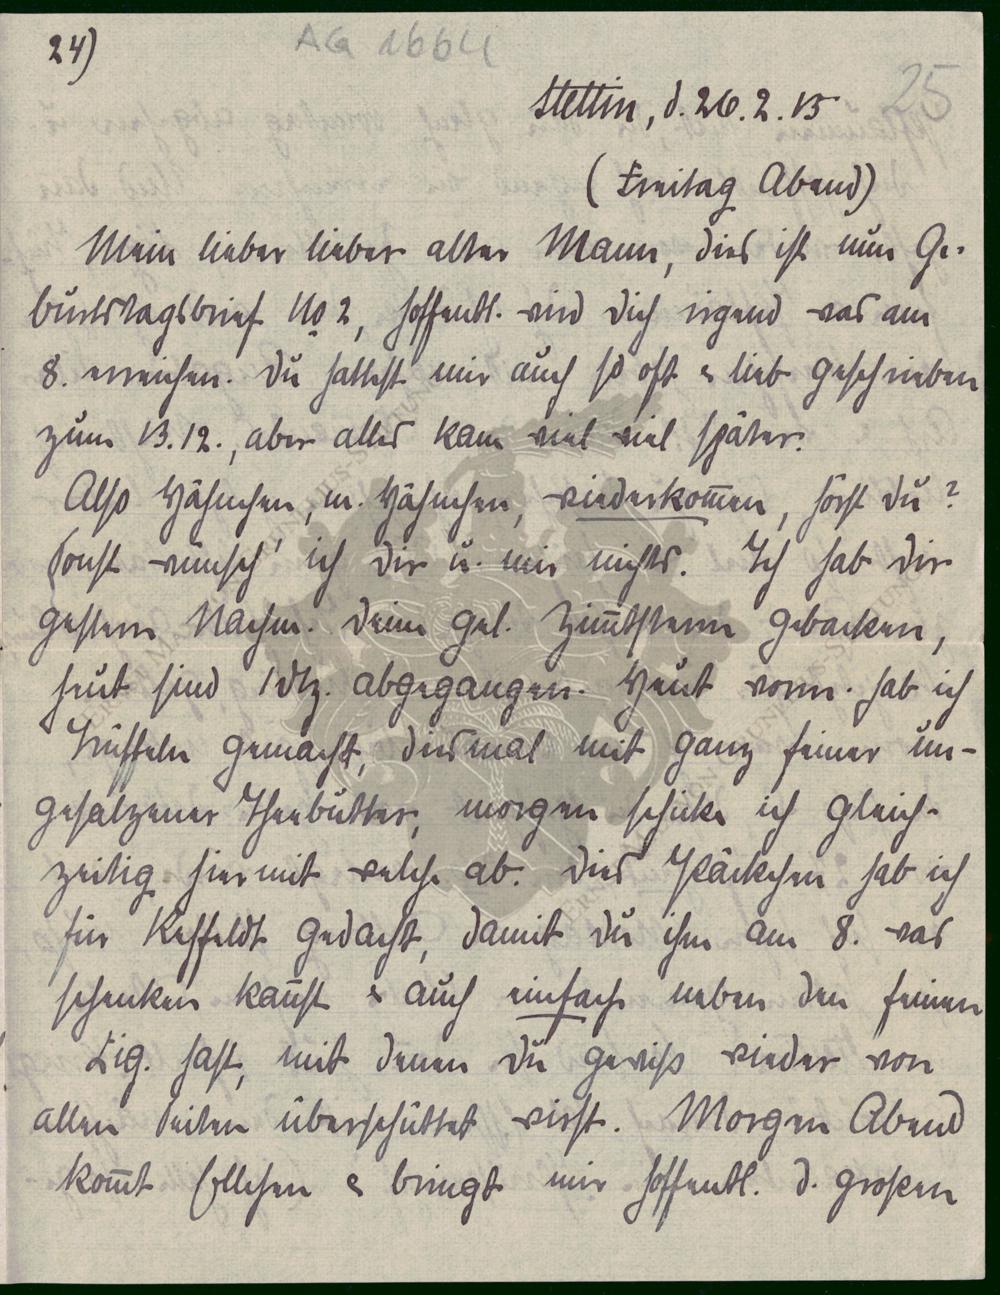 24)
AG 1664
25
Stettin, d. 26.2.15
(Freitag Abend)
Mein lieber lieber alter Mann, dies ist nun Ge-
burtstagsbrief No 2, hoffentl. wird Dich irgend was am
8. erreichen. Du hattest mir auch so oft & lieb geschrieben
zum 13.12., aber alles kam viel viel später.
Also Hähnchen, m. Hähnchen, wiederkom̅en, hörst Du?
sonst wünsch' ich Dir u. mir nichts. Ich hab Dir
gestern Nachm. Deine gel. Zim̅tsterne gebacken,
heut sind 1 Dtz. abgegangen. Heut vorm. hab ich
Trüffeln gemacht, diesmal mit ganz feiner un-
gesalzener Theebutter, morgen schicke ich gleich-
zeitig hiermit welche ab. Dies Päckchen hab ich
für Keffeldt gedacht, damit Du ihm am 8. was
schenken kan̅st & auch einfache neben den feinen
Zig. hast, mit denen Du gewiss wieder von
allen Seiten überschüttet wirst. Morgen Abend
kom̅t & bringt mir hoffentl. d. großen